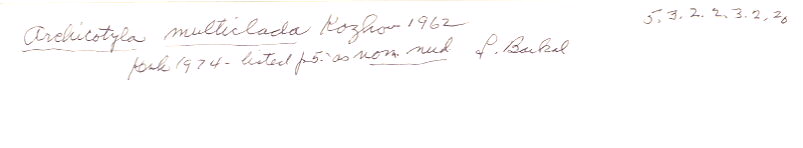 Archicotyla multiclada Kozhov 1962 5.3.2.2.3.2.20
1974 - listed p5 as nom nud L. Baikal